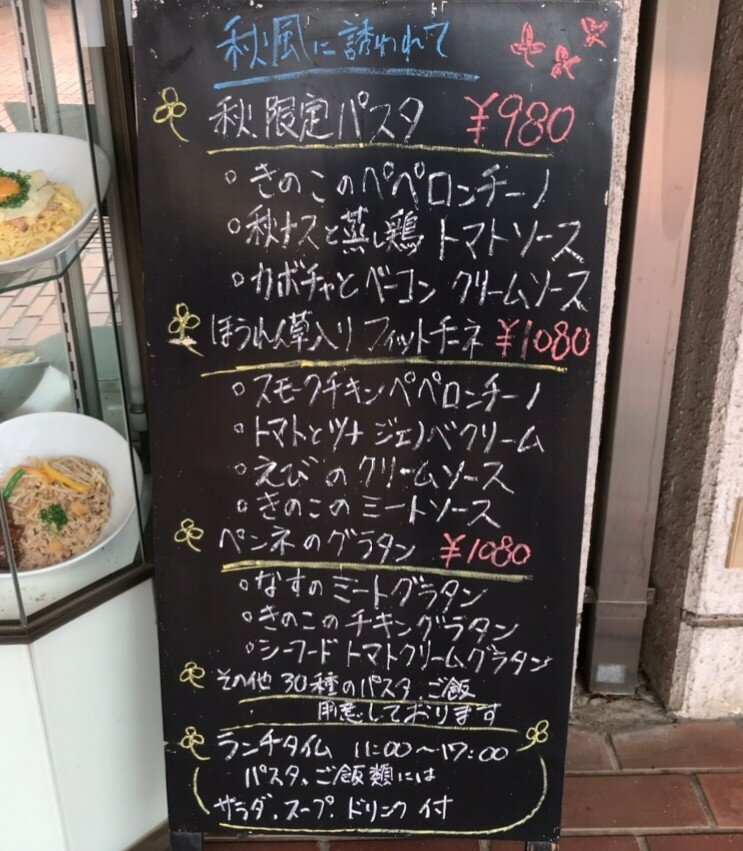 秋風に誘われて
秋限定パスタ ¥980
○きのこのペペロンチーノ
○秋ナスと蒸し鶏 トマトソース
○カボチャとベーコン クリームソース
ほうれん草入り フィットチーネ ¥1080
○スモークチキンペペロンチーノ
○トマトとツナ ジェノベクリーム
○えびのクリームソース
○きのこのミートソース
ペンネのグラタン ¥1080
○なすのミートグラタン
○きのこのチキングラタン
○シーフードトマトクリームグラタン
その他 30種のパスタ、ご飯
用意しております
ランチタイム 11:00〜17:00
パスタ、ご飯類には
サラダ、スープ、ドリンク付